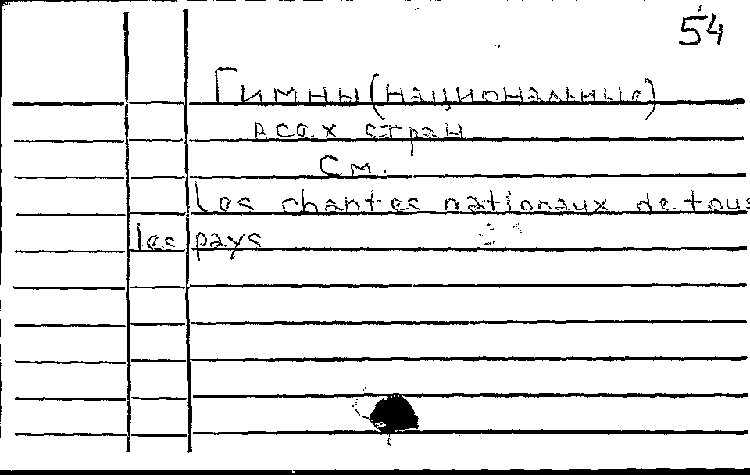 54
Гимны (национальные)
всех стран
См.
Les chantes nationaux de tous
les pays